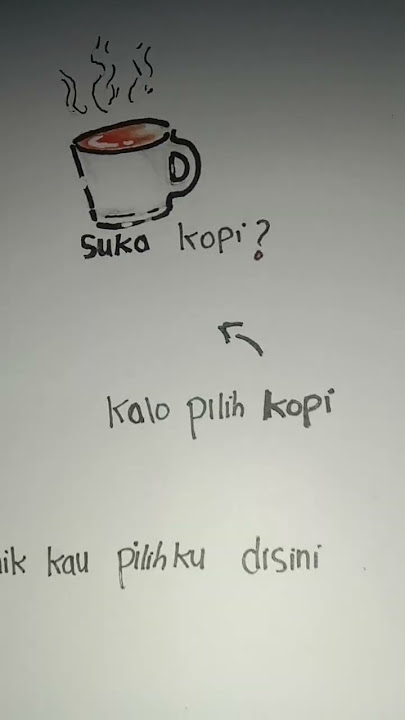 Suka kopi?
kalo pilih kopi
kau pilihku disini